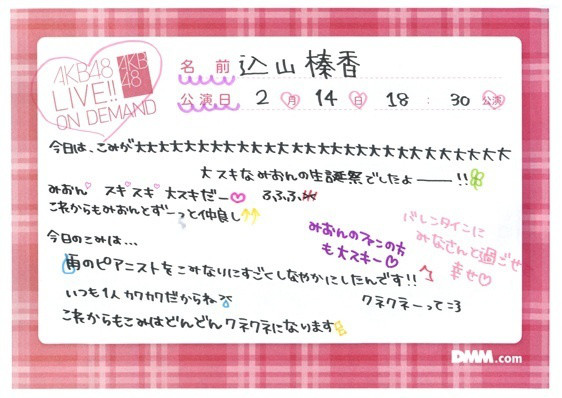 AKB48
LIVE!!
ON DEMAND
AKB
48
名前 込山榛香
公演日 2月 14日 18:30公演
今日は、こみが大大大大大大大大大大大大大大大大大大大大大大大大大大大大
大スキなみおんの生誕祭でしたよー!!
みおん♡ スキ♡スキ♡ 大スキだー♡ るふふふ
これからもみおんとずーっと仲良し
みおんのファンの方
も大スキー♡
バレンタインに
みなさんと過ごせ
幸せ♡
今日のこみは…
雨のピアニストをこみなりにすごくしなやかにしたんです!!
いつも1人カクカクだからね
クネクネーって=3
これからもこみはどんどんクネクネになります
DMM.com